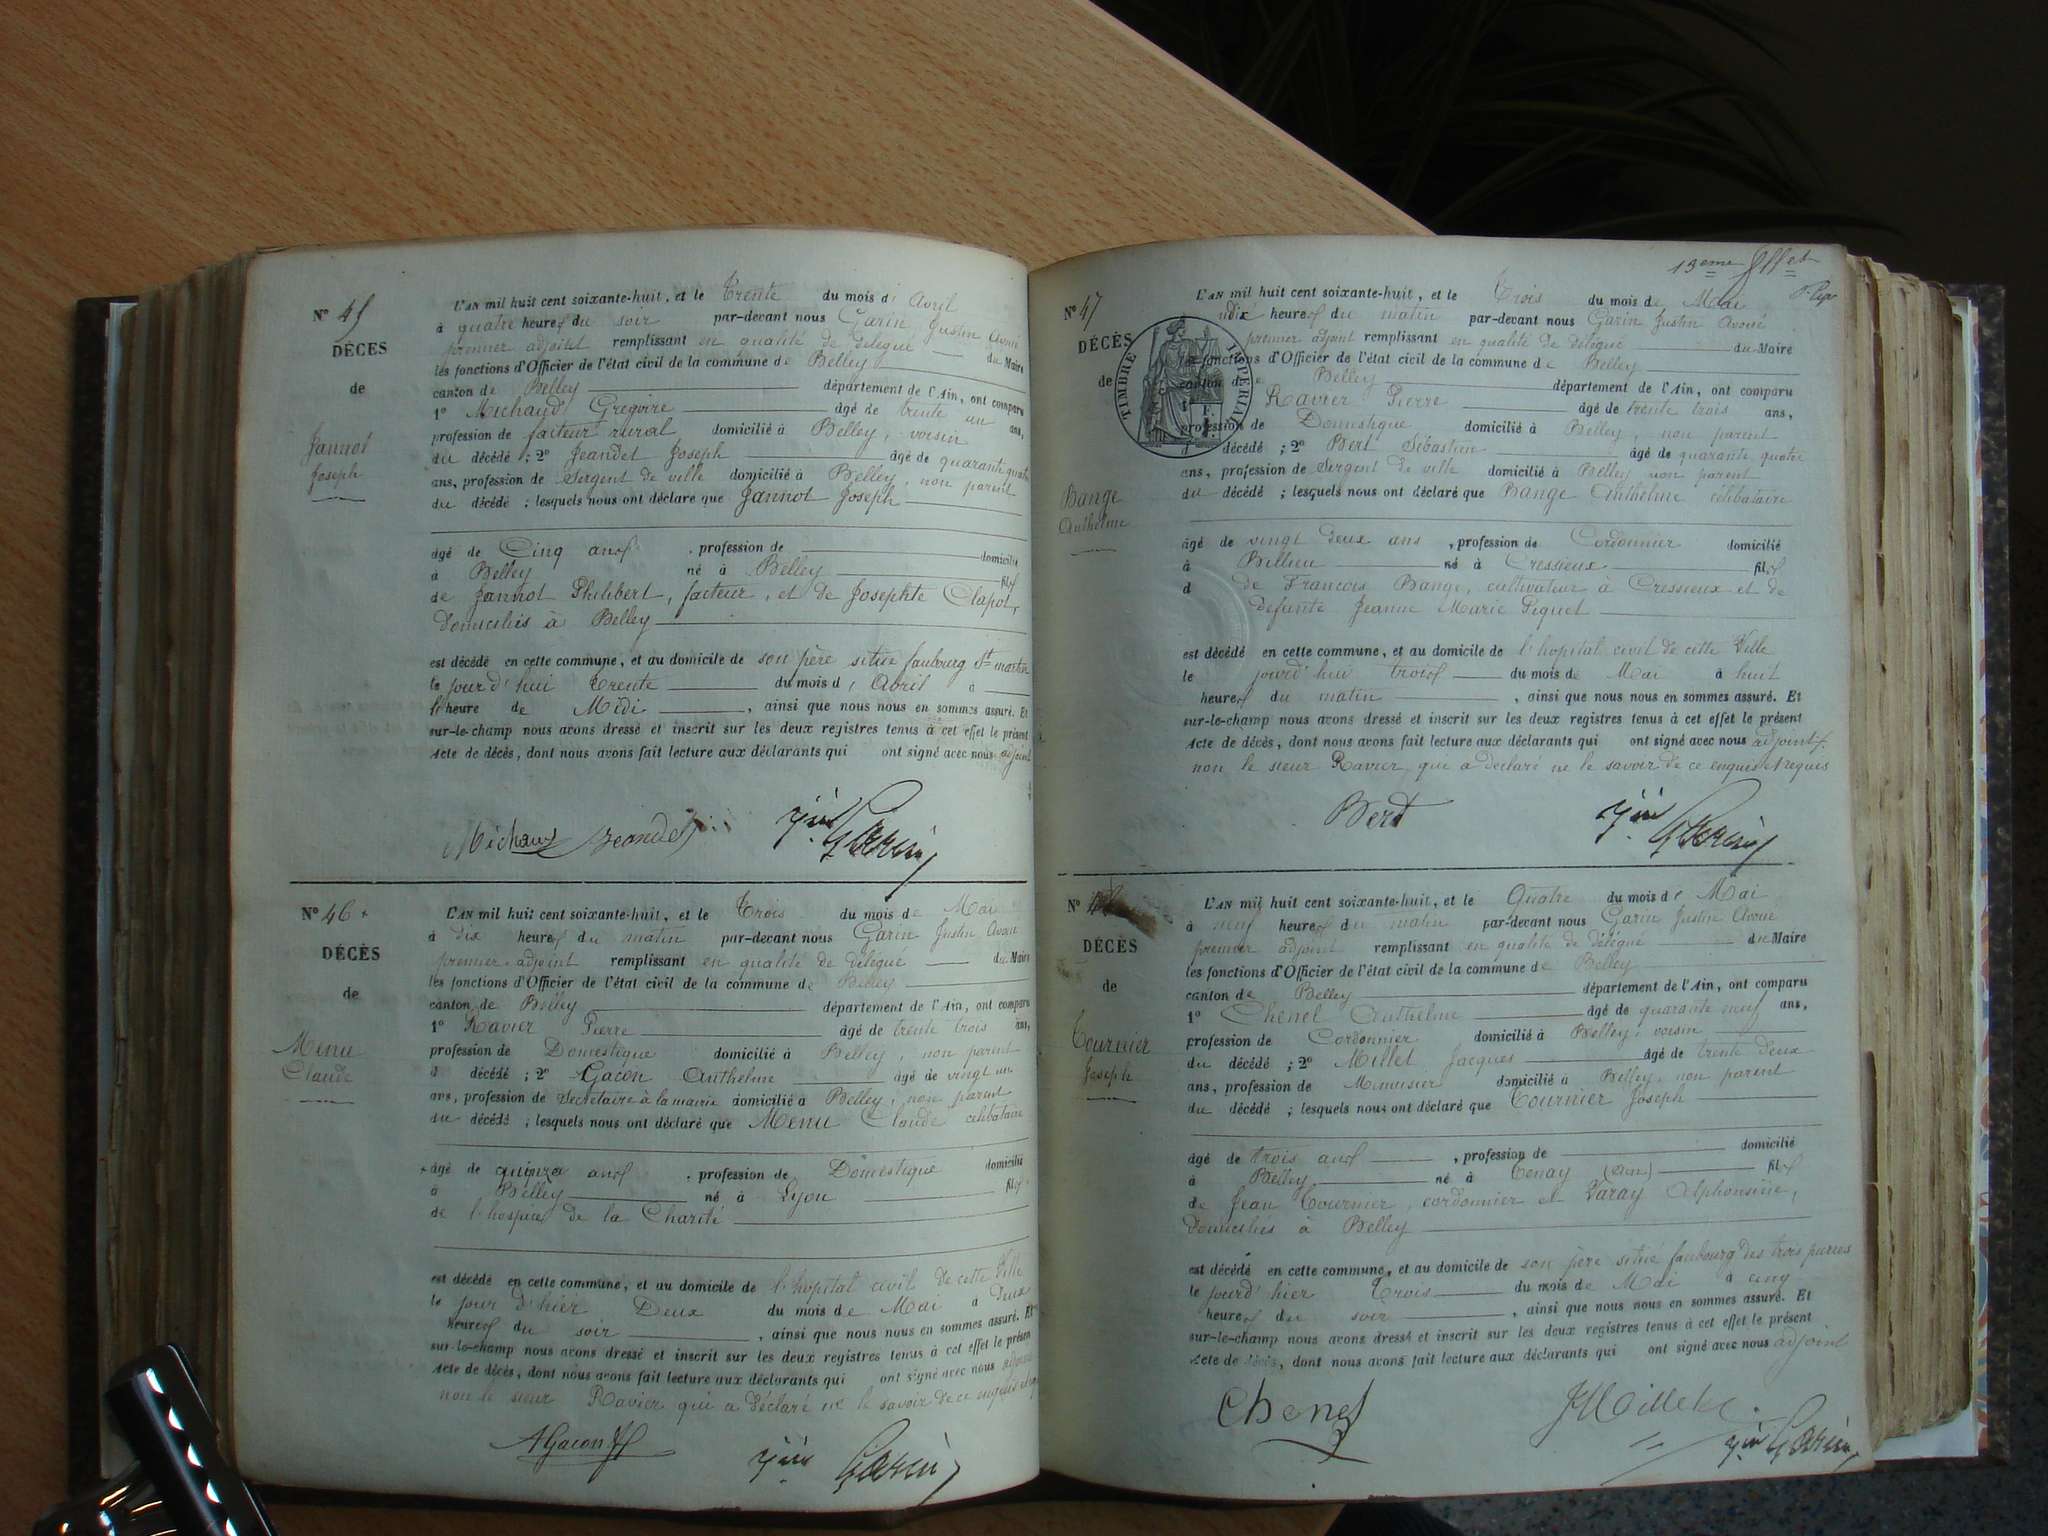 N° 45
DÉCÈS
de
Jannot
Joseph
L'AN mil huit cent soixante-huit, et le Trente du mois d' Avril
à quatre heures du soir par-devant nous Garin Justin Avoué
premier adjoint remplissant en qualité de délégué du Maire
les fonctions d'Officier de l'état civil de la commune de Belley
canton de Belley département de l'Ain, ont comparu
1° Michaud Gregoire âgé de trente un ans,
profession de facteur rural domicilié à Belley, voisin
du décédé ; 2° Jeandet Joseph âgé de quarante quatre
ans, profession de Sergent de ville domicilié à Belley, non parent
du décédé ; lesquels nous ont déclaré que Jannot Joseph
âgé de Cinq ans , profession de domicilié
à Belley né à Belley fils
de Jannot Philibert, facteur, et de Josephte Clapot,
domiciliés à Belley
est décédé en cette commune, et au domicile de son père situé faubourg St martin
le jour d'hui Trente du mois d' Avril à
l'heure de Midi , ainsi que nous nous en sommes assuré. Et
sur-le-champ nous avons dressé et inscrit sur les deux registres tenus à cet effet le présent
acte de décès, dont nous avons fait lecture aux déclarants qui ont signé avec nous adjoint
Michaud Jeandet Jin Garin
N° 46
DÉCÈS
de
Menu
Claude
L'AN mil huit cent soixante-huit, et le Trois du mois de Mai
à dix heures du matin par-devant nous Garin Justin Avoué
premier adjoint remplissant en qualité de délégué du Maire
les fonctions d'Officier de l'état civil de la commune de Belley
canton de Belley département de l'Ain, ont comparu
1° Ravier Pierre âgé de trente trois ans,
profession de Domestique domicilié à Belley, non parent
d décédé ; 2° Gacon Anthelme âgé de vingt un
ans, profession de Secrétaire à la mairie domicilié à Belley, non parent
du décédé ; lesquels nous ont déclaré que Menu Claude célibataire
âgé de quinze ans , profession de Domestique domicilié
à Belley né à Lyon fils
de l'hospice de la Charité
est décédé en cette commune, et au domicile de l'hopital civil de cette Ville
le jour d'hier Deux du mois de Mai à deux
heures du soir , ainsi que nous nous en sommes assuré. Et
sur-le-champ nous avons dressé et inscrit sur les deux registres tenus à cet effet le présent
acte de décès, dont nous avons fait lecture aux déclarants qui ont signé avec nous adjoint
non le sieur Ravier qui a déclaré ne le savoir de ce enquis et requis
AGacon Jin Garin
13eme ffet
N° 47
DÉCÈS
de
Bange
Anthelme
TIMBRE IMPERIAL
L'AN mil huit cent soixante-huit, et le Trois du mois de Mai
à dix heures du matin par-devant nous Garin Justin Avoué
premier adjoint remplissant en qualité de délégué du Maire
les fonctions d'Officier de l'état civil de la commune de Belley
canton de Belley département de l'Ain, ont comparu
Ravier Pierre âgé de trente trois ans,
profession de Domestique domicilié à Belley, non parent
d décédé ; 2° Bert Sébastien âgé de quarante quatre
ans, profession de Sergent de ville domicilié à Belley non parent
du décédé ; lesquels nous ont déclaré que Bange Anthelme célibataire
âgé de vingt deux ans , profession de Cordonnier domicilié
à Billieu né à Cressieux fils
d de Francois Bange, cultivateur à Cressieux et de
defunte Jeanne Marie Piquet
est décédé en cette commune, et au domicile de l'hopital civil de cette Ville
le jourd'hui trois du mois de Mai à huit
heures du matin , ainsi que nous nous en sommes assuré. Et
sur-le-champ nous avons dressé et inscrit sur les deux registres tenus à cet effet le présent
acte de décès, dont nous avons fait lecture aux déclarants qui ont signé avec nous adjoint
non le sieur Ravier, qui a declaré ne le savoir de ce enquis et requis
Bert Jin Garin
N°
DÉCÈS
de
Tournier
Joseph
L'AN mil huit cent soixante-huit, et le Quatre du mois de Mai
à neuf heures du matin par-devant nous Garin Justin Avoué
premier adjoint remplissant en qualité de délégué du Maire
les fonctions d'Officier de l'état civil de la commune de Belley
canton de Belley département de l'Ain, ont comparu
1° Chenel Anthelme âgé de quarante neuf ans,
profession de Cordonnier domicilié à Belley, voisin
du décédé ; 2° Millet Jacques âgé de trente deux
ans, profession de Menuisier domicilié à Belley, non parent
du décédé ; lesquels nous ont déclaré que Tournier Joseph
âgé de trois ans , profession de domicilié
à Belley né à Tenay (ain) fils
de Jean Tournier, cordonnier et Varay Alphonsine,
domiciliés à Belley
est décédé en cette commune, et au domicile de son père situé faubourg des trois pierres
le jourd'hier Trois du mois de Mai à cinq
heures du soir , ainsi que nous nous en sommes assuré. Et
sur-le-champ nous avons dressé et inscrit sur les deux registres tenus à cet effet le présent
acte de décès, dont nous avons fait lecture aux déclarants qui ont signé avec nous adjoint
Chenel JMillet Jin Garin